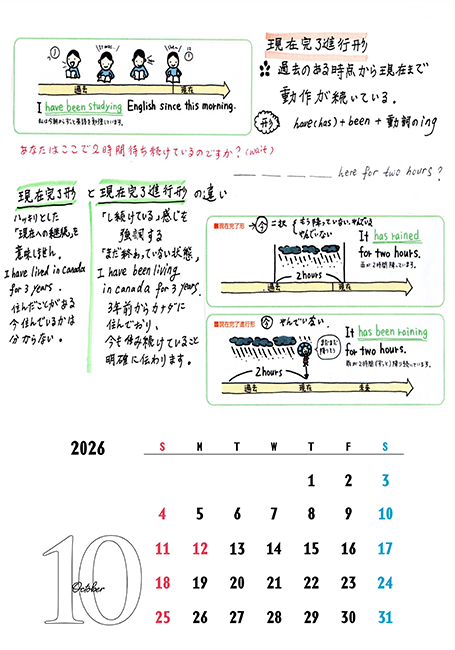 現在完了進行形
過去のある時点から現在まで
動作が続いている。
形 have(has)+been+動詞のing
過去 現在
I have been studying English since this morning.
私は今朝からずっと英語を勉強しています。
あなたはここで2時間待ち続けているのですか?(wait)
____ ____ ____ ____ here for two hours?
現在完了形 と 現在完了進行形 の違い
ハッキリとした
「現在への継続」を
意味しません。
I have lived in Canada
for 3 years.
住んだことがある
今住んでいるかは
分からない。
「し続けている」感じを
強調する
「まだ終わっていない状態」
I have been living
in canada for 3 years.
3年前からカナダに
住んでおり、
今も住み続けていること
明確に伝わります。
■現在完了形
→今=二択
もう降っていない、やんでいる
やんでいない
It has rained
for two hours.
雨が2時間降っています。
2hours
過去 現在
■現在完了進行形
今 やんでいない
It has been raining
for two hours.
雨が2時間(ずっと)降り続いています。
まだまだ
降りそう
2hours
過去 現在 未来
2026
10
October
S M T W T F S
1 2 3
4 5 6 7 8 9 10
11 12 13 14 15 16 17
18 19 20 21 22 23 24
25 26 27 28 29 30 31